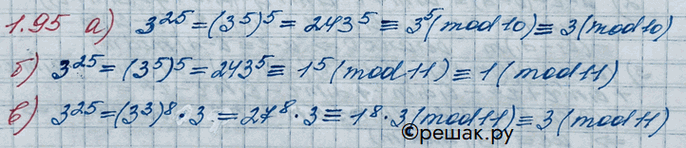 1.95 а) 3²⁵=(3⁵)⁵=243⁵≡3⁵(mod 10)≡3(mod 10)
б) 3²⁵=(3⁵)⁵=243⁵≡1⁵(mod 11)≡1(mod 11)
в) 3²⁵=(3³)⁸·3=27⁸·3≡1⁸·3(mod 11)≡3(mod 11)
©решак.ру